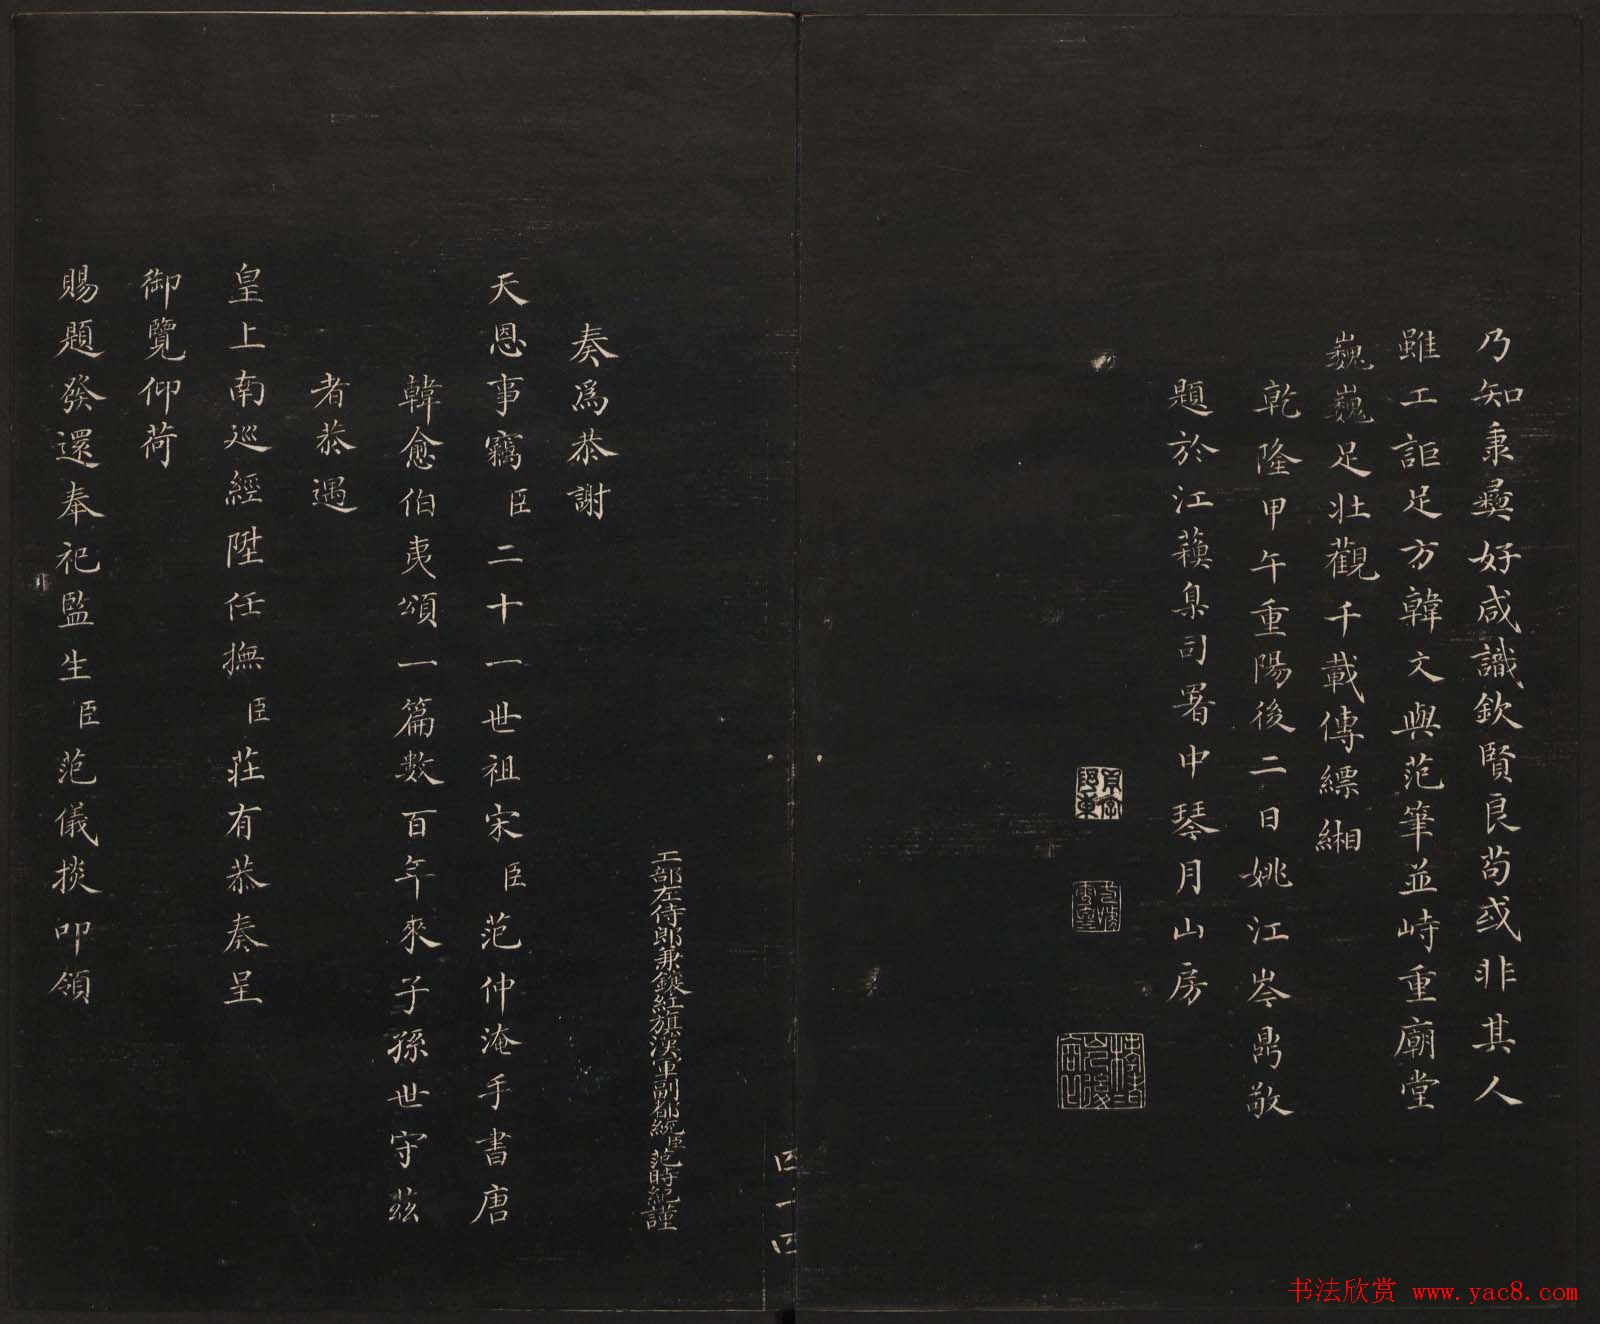 乃知秉彝好咸識欽賢良苟或非其人
雖工詎足方韓文與范筆並峙重廟堂
巍巍足壯觀千載傳縹緗
乾隆甲午重陽後二日姚江岑昺敬
題於江蘓臬司署中琴月山房
四十四
工部左侍郎兼鑲紅旗漢軍副都統臣范時紀謹
奏為恭謝
天恩事竊臣二十一世祖宋臣范仲淹手書唐
韓愈伯夷頌一篇數百年來子孫世守茲
者恭遇
皇上南巡經陞任撫臣莊有恭奏呈
御覽仰荷
賜題發還奉祀監生臣范儀掞叩領
书法欣赏 www.yac8.com